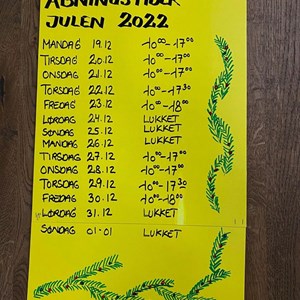 ÅBNINGSTIDER
JULEN 2022
MANDAG 19.12 10⁰⁰-17⁰⁰
TIRSDAG 20.12 10⁰⁰-17⁰⁰
ONSDAG 21.12 10⁰⁰-17⁰⁰
TORSDAG 22.12 10⁰⁰-17³⁰
FREDAG 23.12 10⁰⁰-18⁰⁰
LØRDAG 24.12 LUKKET
SØNDAG 25.12 LUKKET
MANDAG 26.12 LUKKET
TIRSDAG 27.12 10⁰⁰-17⁰⁰
ONSDAG 28.12 10⁰⁰-17⁰⁰
TORSDAG 29.12 10⁰⁰-17³⁰
FREDAG 30.12 10⁰⁰-18⁰⁰
LØRDAG 31.12 LUKKET
SØNDAG 01-01 LUKKET